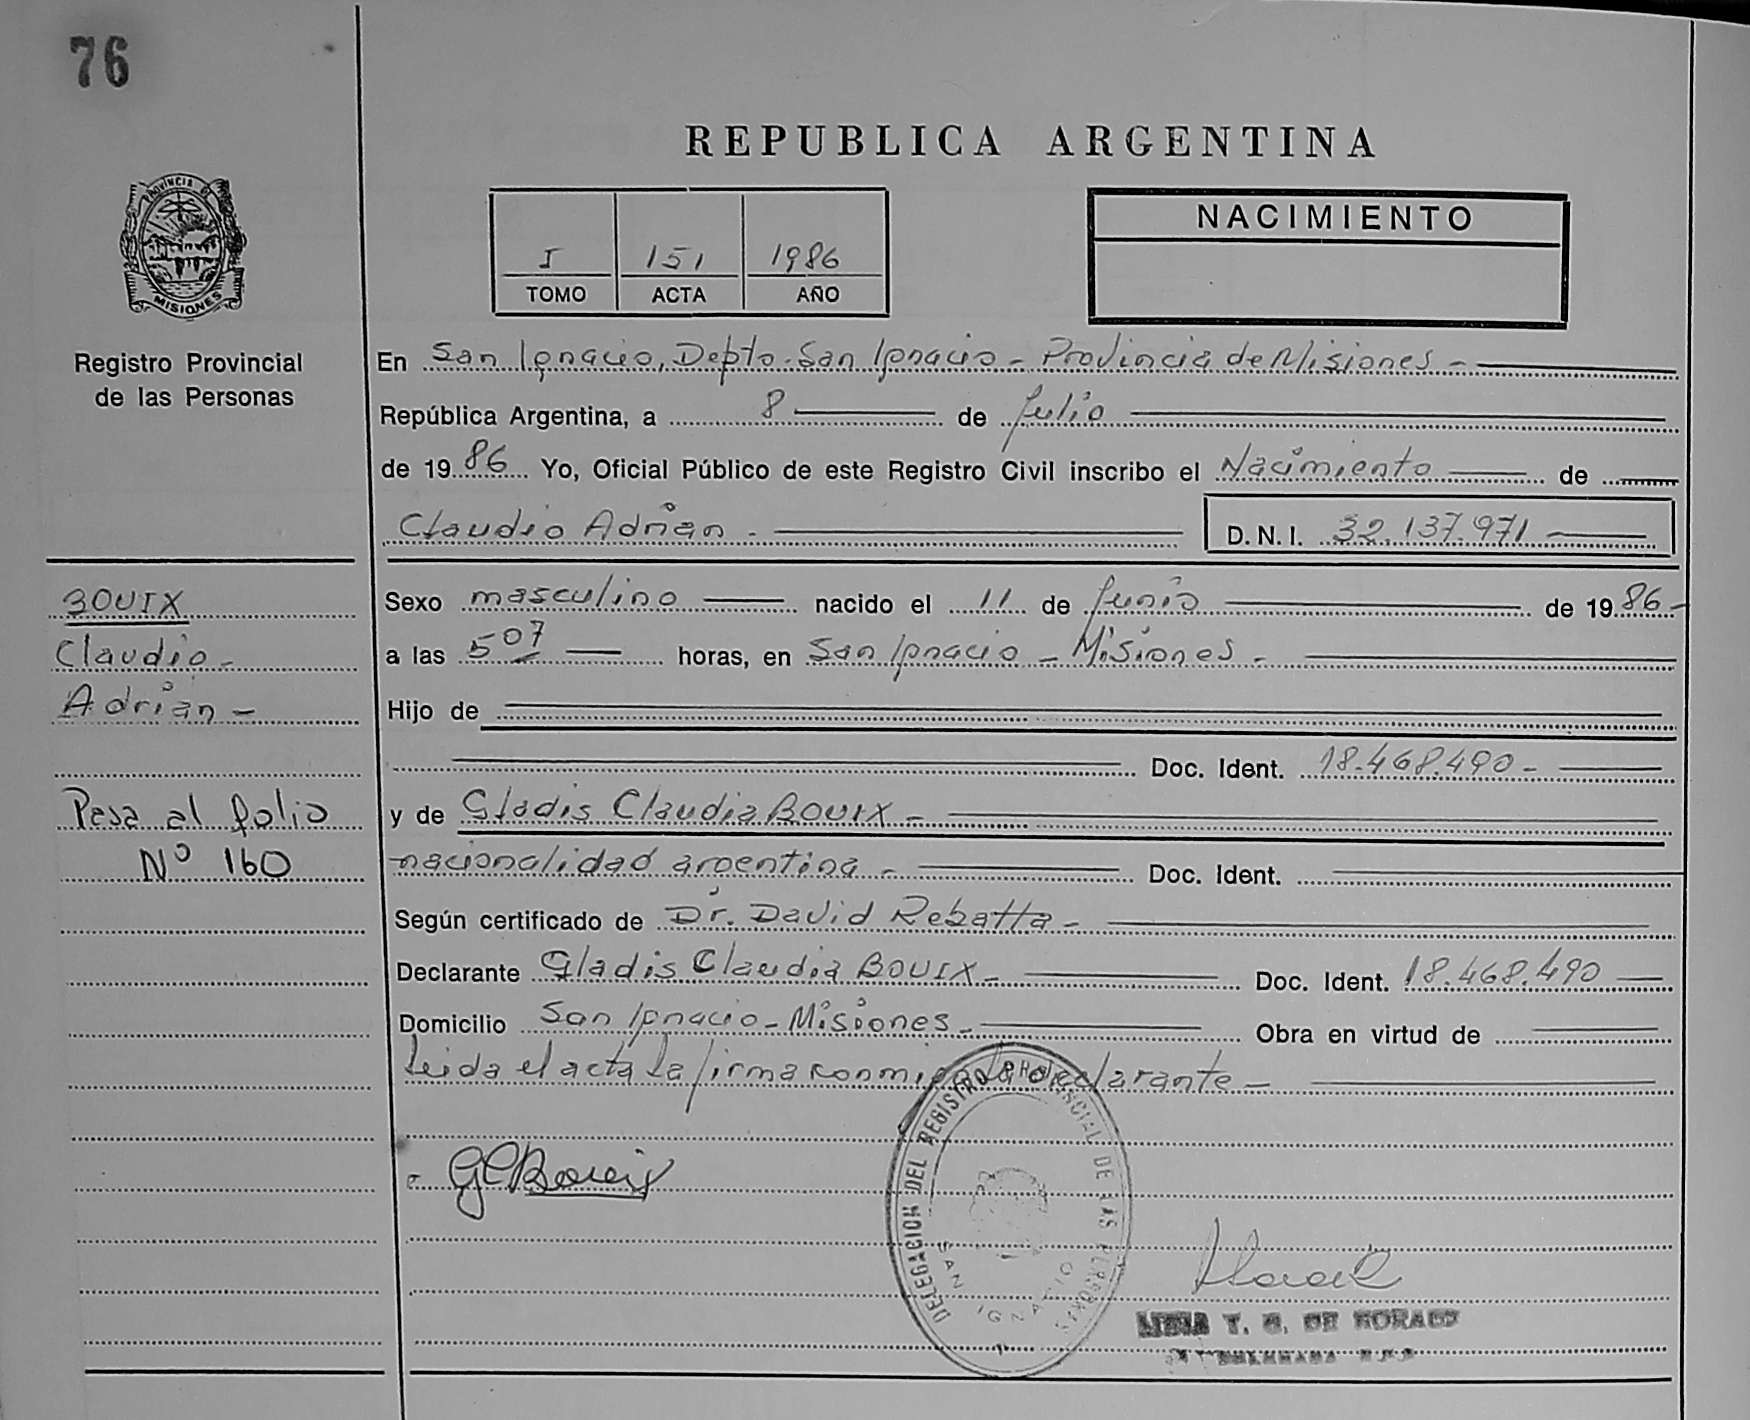 76
REPUBLICA ARGENTINA
PROVINCIA DE
MISIONES
Registro Provincial
de las Personas
I 151 1986
TOMO ACTA AÑO
NACIMIENTO
En San Ignacio, Depto. San Ignacio - Provincia de Misiones -
República Argentina, a 8 de Julio
de 1986 Yo, Oficial Público de este Registro Civil inscribo el Nacimiento de
Claudio Adrián - D.N.I. 32.137.971
BOUIX
Claudio -
Adrián -
Pasa al folio
Nº 160
Sexo masculino nacido el 11 de Junio de 1986 -
a las 5 07 horas, en San Ignacio - Misiones -
Hijo de
Doc. Ident. 18.468.490 -
y de Gladis Claudia BOUIX -
nacionalidad argentina - Doc. Ident.
Según certificado de Dr. David Rebatta -
Declarante Gladis Claudia BOUIX - Doc. Ident. 18.468.490
Domicilio San Ignacio - Misiones - Obra en virtud de
Leida el acta la firma conmigo la declarante -
GCBouix
DELEGACION DEL REGISTRO PROVINCIAL DE LAS PERSONAS
SAN IGNACIO
T. G. DE